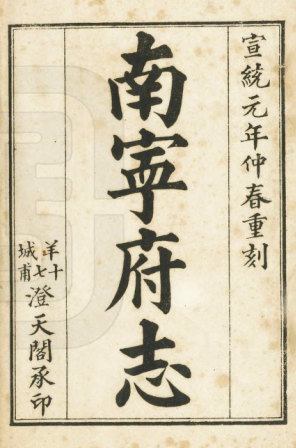 宣統元年仲春重刻
南寕府志
羊城十七甫澄天閣承印